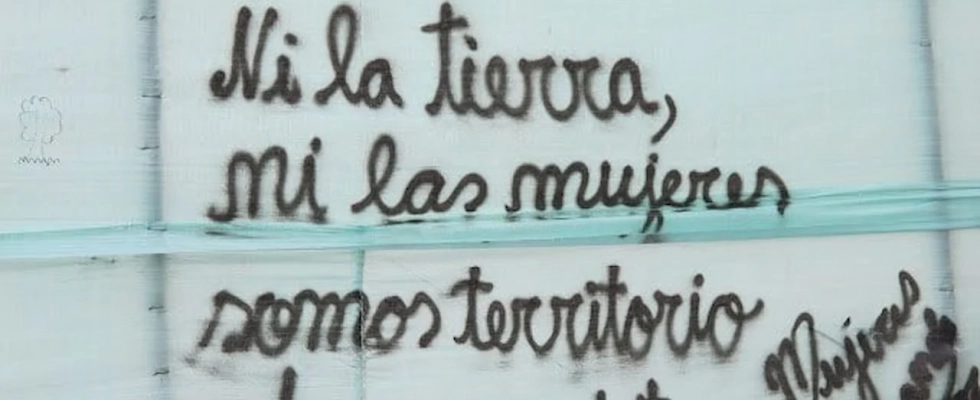 Ni la tierra,
ni las mujeres
somos territorio
Mujeres